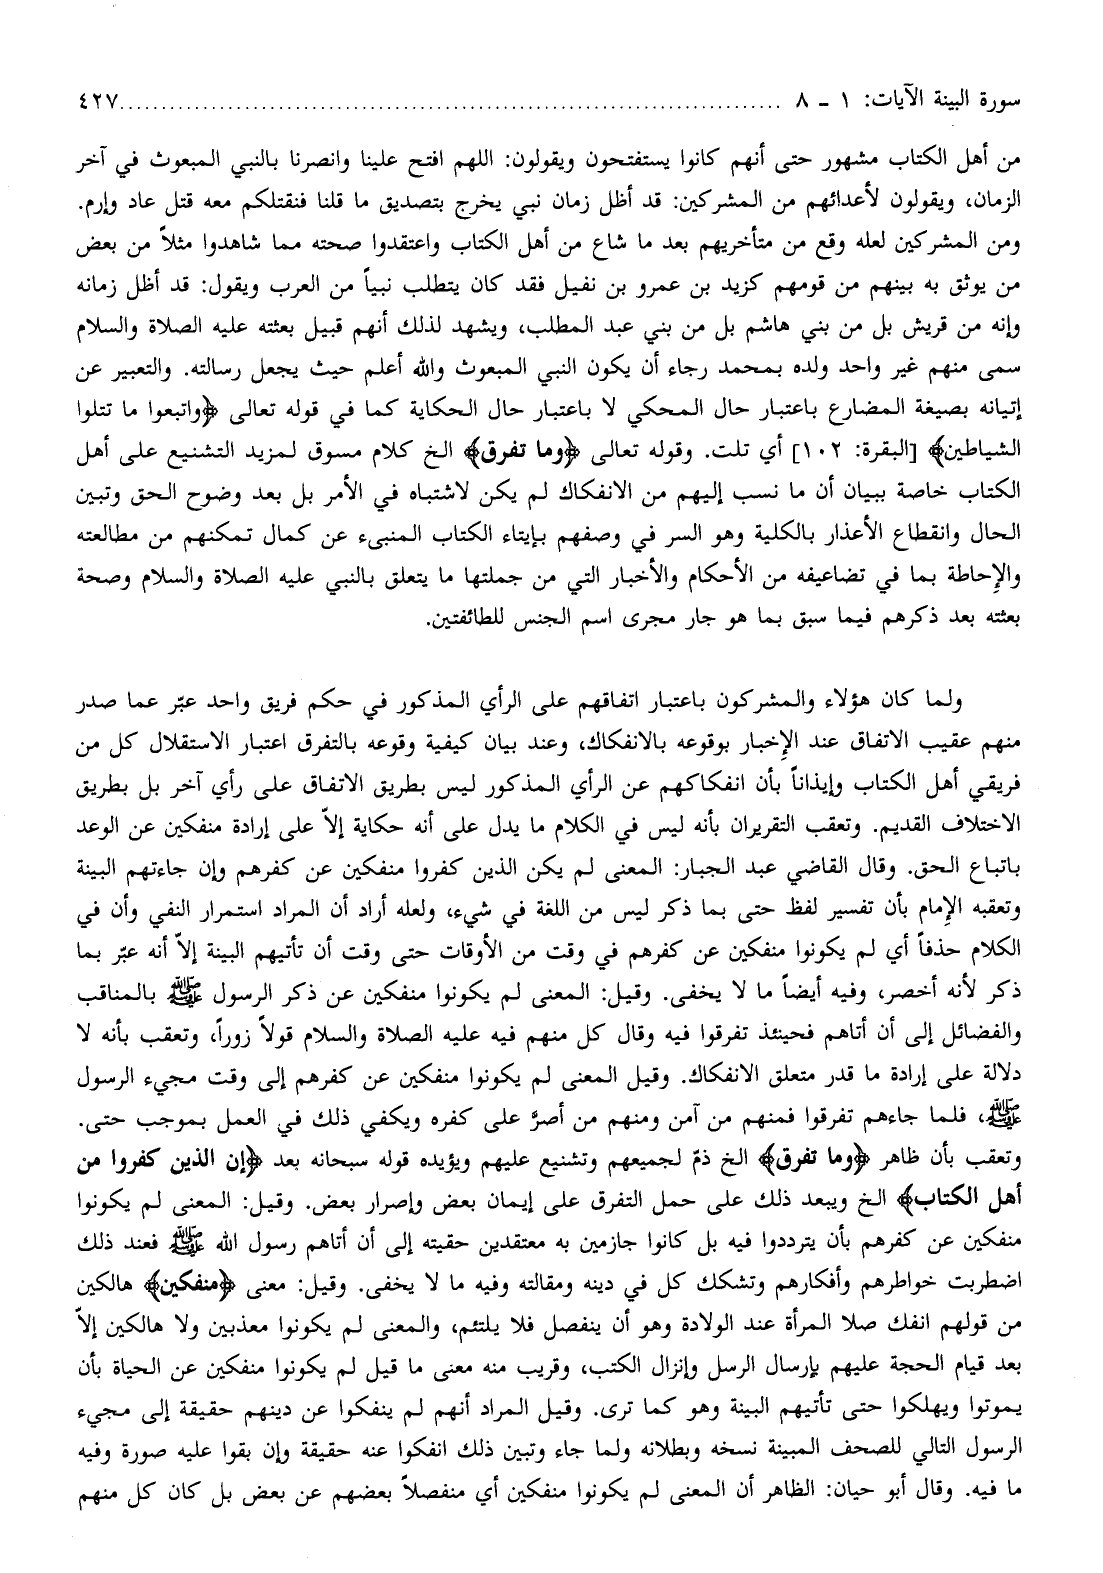 سورة البينة الآيات: ١ - ٨ ................................................................................ ٤٢٧
من أهل الكتاب مشهور حتى أنهم كانوا يستفتحون ويقولون: اللهم افتح علينا وانصرنا بالنبي المبعوث في آخر
الزمان، ويقولون لأعدائهم من المشركين: قد أظل زمان نبي يخرج بتصديق ما قلنا فنقتلكم معه قتل عاد وإرم.
ومن المشركين لعله وقع من متأخريهم بعد ما شاع من أهل الكتاب واعتقدوا صحته مما شاهدوا مثلاً من بعض
من يوثق به بينهم من قومهم كزيد بن عمرو بن نفيل فقد كان يتطلب نبياً من العرب ويقول: قد أظل زمانه
وإنه من قريش بل من بني هاشم بل من بني عبد المطلب، ويشهد لذلك أنهم قبيل بعثته عليه الصلاة والسلام
سمى منهم غير واحد ولده بمحمد رجاء أن يكون النبي المبعوث والله أعلم حيث يجعل رسالته. والتعبير عن
إتيانه بصيغة المضارع باعتبار حال المحكي لا باعتبار حال الحكاية كما في قوله تعالى ﴿واتبعوا ما تتلوا
الشياطين﴾ [البقرة: ١٠٢] أي تلت. وقوله تعالى ﴿وما تفرق﴾ الخ كلام مسوق لمزيد التشنيع على أهل
الكتاب خاصة ببيان أن ما نسب إليهم من الانفكاك لم يكن لاشتباه في الأمر بل بعد وضوح الحق وتبين
الحال وانقطاع الأعذار بالكلية وهو السر في وصفهم بإيتاء الكتاب المنبىء عن كمال تمكنهم من مطالعته
والإحاطة بما في تضاعيفه من الأحكام والأخبار التي من جملتها ما يتعلق بالنبي عليه الصلاة والسلام وصحة
بعثته بعد ذكرهم فيما سبق بما هو جار مجرى اسم الجنس للطائفتين.
ولما كان هؤلاء والمشركون باعتبار اتفاقهم على الرأي المذكور في حكم فريق واحد عبّر عما صدر
منهم عقيب الاتفاق عند الإخبار بوقوعه بالانفكاك، وعند بيان كيفية وقوعه بالتفرق اعتبار الاستقلال كل من
فريقي أهل الكتاب وإيذاناً بأن انفكاكهم عن الرأي المذكور ليس بطريق الاتفاق على رأي آخر بل بطريق
الاختلاف القديم. وتعقب التقريران بأنه ليس في الكلام ما يدل على أنه حكاية إلاّ على إرادة منفكين عن الوعد
باتباع الحق. وقال القاضي عبد الجبار: المعنى لم يكن الذين كفروا منفكين عن كفرهم وإن جاءتهم البينة
وتعقبه الإمام بأن تفسير لفظ حتى بما ذكر ليس من اللغة في شيء، ولعله أراد أن المراد استمرار النفي وأن في
الكلام حذفاً أي لم يكونوا منفكين عن كفرهم في وقت من الأوقات حتى وقت أن تأتيهم البينة إلاّ أنه عبّر بما
ذكر لأنه أخصر، وفيه أيضاً ما لا يخفى. وقيل: المعنى لم يكونوا منفكين عن ذكر الرسول ﷺ بالمناقب
والفضائل إلى أن أتاهم فحينئذ تفرقوا فيه وقال كل منهم فيه عليه الصلاة والسلام قولاً زوراً، وتعقب بأنه لا
دلالة على إرادة ما قدر متعلق الانفكاك. وقيل المعنى لم يكونوا منفكين عن كفرهم إلى وقت مجيء الرسول
ﷺ، فلما جاءهم تفرقوا فمنهم من آمن ومنهم من أصرَّ على كفره ويكفي ذلك في العمل بموجب حتى.
وتعقب بأن ظاهر ﴿وما تفرق﴾ الخ ذمّ لجميعهم وتشنيع عليهم ويؤيده قوله سبحانه بعد ﴿إن الذين كفروا من
أهل الكتاب﴾ الخ ويبعد ذلك على حمل التفرق على إيمان بعض وإصرار بعض. وقيل: المعنى لم يكونوا
منفكين عن كفرهم بأن يترددوا فيه بل كانوا جازمين به معتقدين حقيته إلى أن أتاهم رسول الله ﷺ فعند ذلك
اضطربت خواطرهم وأفكارهم وتشكك كل في دينه ومقالته وفيه ما لا يخفى. وقيل: معنى ﴿منفكين﴾ هالكين
من قولهم انفك صلا المرأة عند الولادة وهو أن ينفصل فلا يلتئم، والمعنى لم يكونوا معذبين ولا هالكين إلاّ
بعد قيام الحجة عليهم بإرسال الرسل وإنزال الكتب، وقريب منه معنى ما قيل لم يكونوا منفكين عن الحياة بأن
يموتوا ويهلكوا حتى تأتيهم البينة وهو كما ترى. وقيل المراد أنهم لم ينفكوا عن دينهم حقيقة إلى مجيء
الرسول التالي للصحف المبينة نسخه وبطلانه ولما جاء وتبين ذلك انفكوا عنه حقيقة وإن بقوا عليه صورة وفيه
ما فيه. وقال أبو حيان: الظاهر أن المعنى لم يكونوا منفكين أي منفصلاً بعضهم عن بعض بل كان كل منهم